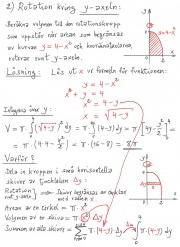 2) Rotation kring y-axeln:
Beräkna volymen till den rotationskropp
som uppstår när arean som begränsas
av kurvan y = 4 - x² och koordinataxlarna
roterar runt y-axeln.
Lösning: Lös ut x ur formeln för funktionen:
y = 4 - x²
x² + y = 4
x² = 4 - y
x = √(4-y)
Integrera över y:
V = π·∫(√(4-y))² dy = π·∫(4-y) dy = π·[4y - y²/2]
= π·(4·4 - 4²/2) = π·(16-8) = 8π
Varför?
Dela in kroppen i små horisontella
skivor av tjockleken Δy:
Rotation runt y-axeln
Arean av en cirkel är π·x²
Volymen av en skiva =
Summan av alla skivor